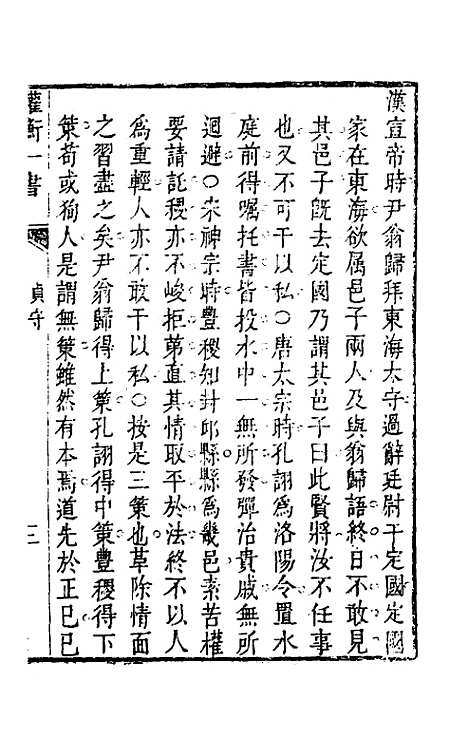 漢宣帝時尹翁歸拜東海太守過辭廷尉于定國定國
家在東海欲属邑子兩人及與翁歸語終日不敢見
其邑子旣去定國乃謂其邑子曰此賢將汝不任事
也又不可干以私○唐太宗時孔詡爲洛陽令置水
庭前得囑托書皆投水中一無所發彈治貴戚無所
迴避○宋神宗時豐稷知封邱縣縣爲畿邑素苦權
要請託稷亦不峻拒第直其情取平於法終不以人
爲重輕人亦不敢干以私○按是三策也草除情面
之習盡之矣尹翁歸得上策孔詡得中策豐稷得下
策苟或狥人是謂無策雖然有本焉道先於正已已
權衡一書
貞守
三